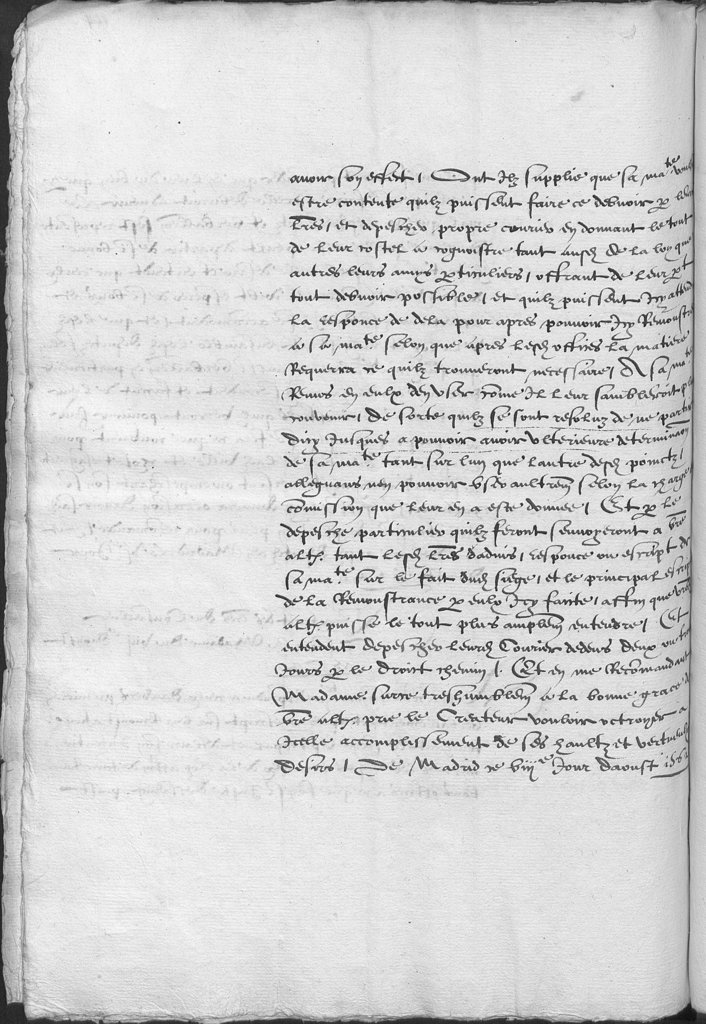 avoir son effect / Ont Ilz supplie que sa ma.te
estre contente quilz puissent faire ce debvoir p
lres / et depescher propre courier en donnant le tout
de leur costel a cognoistre tant ausd. de la loy que
autres leurs amys p.ticuliers / offrant de leur p.t
tout debvoir possible / et quilz puissent Icy
la responce de dela pour apres pouvoir Icy
a sa ma.te selon que apres lesd. offices la matiere
Requerra ce quilz trouveront necessaire / A sa ma.te
Remis en eulx den user come Il leur sambleroit
convenir / De sorte quilz se sont resoluz de ne partir
dicy Jusques a pouvoir avoir ulterieure determinaon
de sa ma.te tant sur lun que lautre desd. poinctz /
alleguans nen pouvoir user aultrem selon la charge
comission que leur en a este donnee / Et p le
depesche particulier quilz feront senvoyeront a vre
alt.ze tant lesd. lres dadvis / responce ou escript de
sa ma.te sur le fait dud. siege / et le principal
de la Remonstrance p eulx Icy faicte / affin que vre
alt.ze puisse le tout plus amplem entendre / Et
entendent depescher leurd. Courier dedens deux ou
Jours p le droict chemin / Et en me Recomandant
Madame surce treshumblem a la bonne grace de
vre alt.ze prie le Createur vouloir octroyer a
Icelle accomplissement de ses haultz et vertueulx
desirs / De Madrid ce viij.e Jour daoust 156